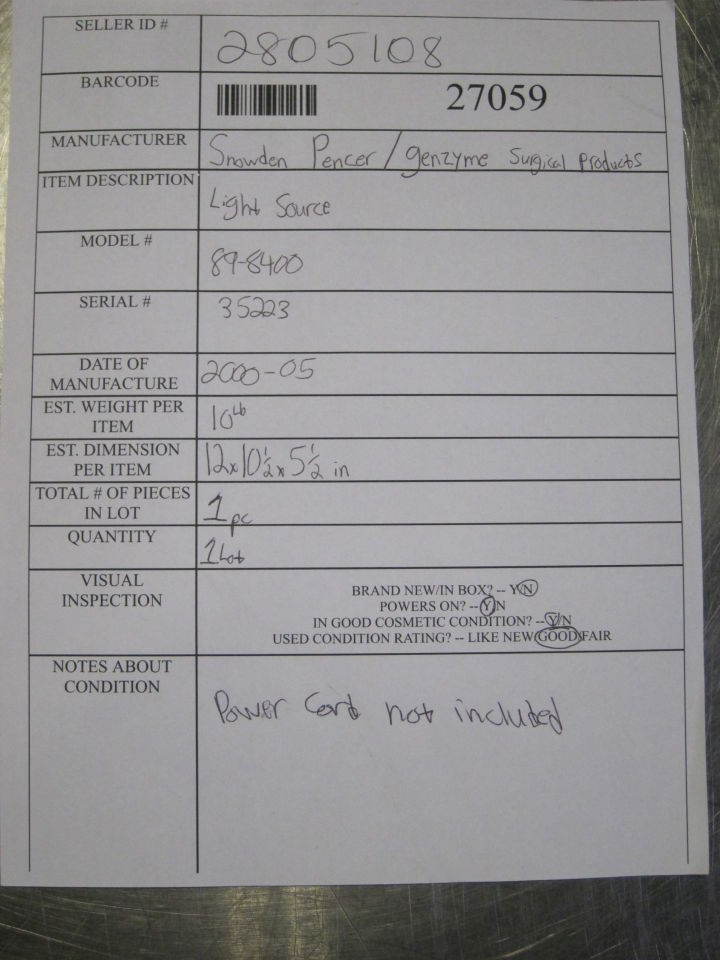 SELLER ID # 2805108
BARCODE 27059
MANUFACTURER Snowden Pencer/genzyme Surgical Products
ITEM DESCRIPTION Light Source
MODEL # 89-8400
SERIAL # 35223
DATE OF
MANUFACTURE 2000-05
EST. WEIGHT PER
ITEM 10 lb
EST. DIMENSION
PER ITEM 12x10 1/2 x 5 1/2 in
TOTAL # OF PIECES
IN LOT 1 pc
QUANTITY 1 Lot
VISUAL
INSPECTION
BRAND NEW/IN BOX? -- Y/N
POWERS ON? -- Y/N
IN GOOD COSMETIC CONDITION? -- Y/N
USED CONDITION RATING? -- LIKE NEW/GOOD/FAIR
NOTES ABOUT
CONDITION
Power Cord not included